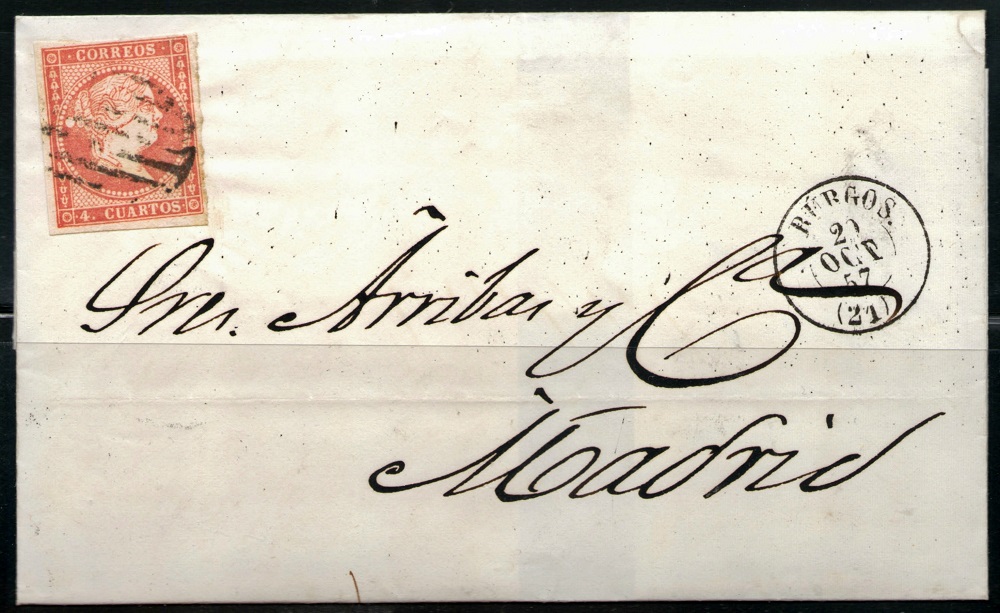 CORREOS
4. CUARTOS
BURGOS.
OCT
57
(21)
Sres. Arribas y Cª
Madrid